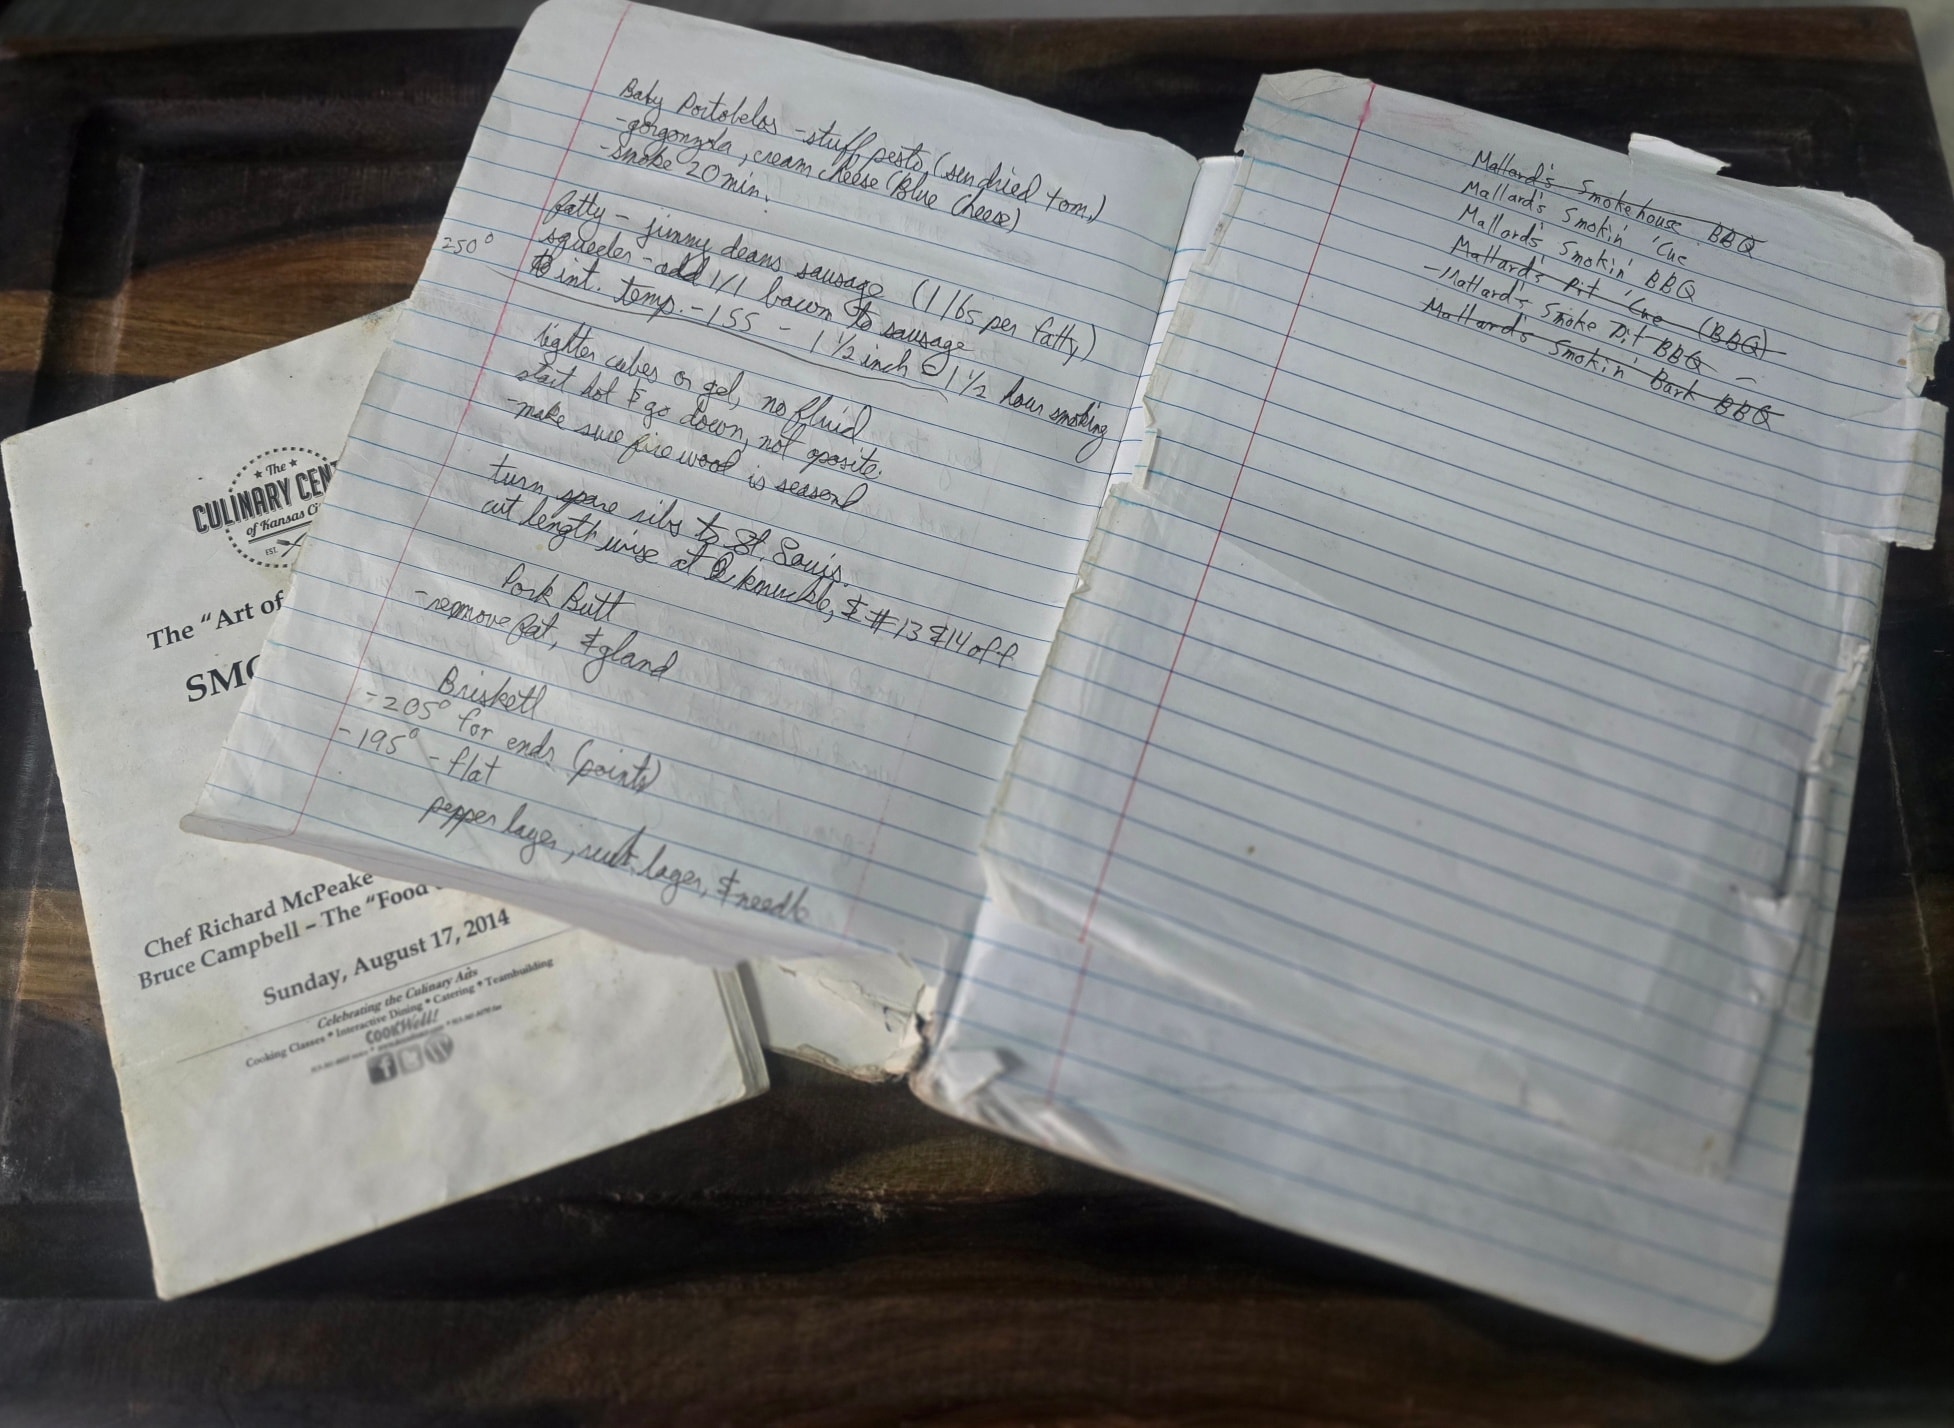 Baby Portobelos - stuff pesto (sundried tom.)
- gorgonzola, cream cheese (Blue Cheese)
- smoke 20 min.
fatty - jimmy deans sausage (1 lbs per fatty)
squeeler - add 1/1 bacon to sausage
250° to int. temp. - 155 - 1 ½ inch @ 1 ½ hour smoking
lighter cubes or gel, no fluid
start hot & go down, not oposite.
- make sure fire wood is seasend
turn spare ribs to St. Louis.
cut length wise at knuckle, & #13 & 14 off
Pork Butt
- remove fat, & gland
Brisket
- 205° for ends (points)
- 195° - flat
pepper layer, rub layer, & needle
Mallard's Smokehouse BBQ
Mallard's Smokin' 'Cue
Mallard's Smokin' BBQ
Mallard's Pit 'Cue (BBQ)
- Mallard's Smoke Pit BBQ -
Mallard's Smokin' Bark BBQ
The
CULINARY CEN
of Kansas Ci
EST.
The "Art of
SMO
Chef Richard McPeake
Bruce Campbell – The "Food
Sunday, August 17, 2014
Celebrating the Culinary Arts
Cooking Classes * Interactive Dining * Catering * Teambuilding
COOKWell!